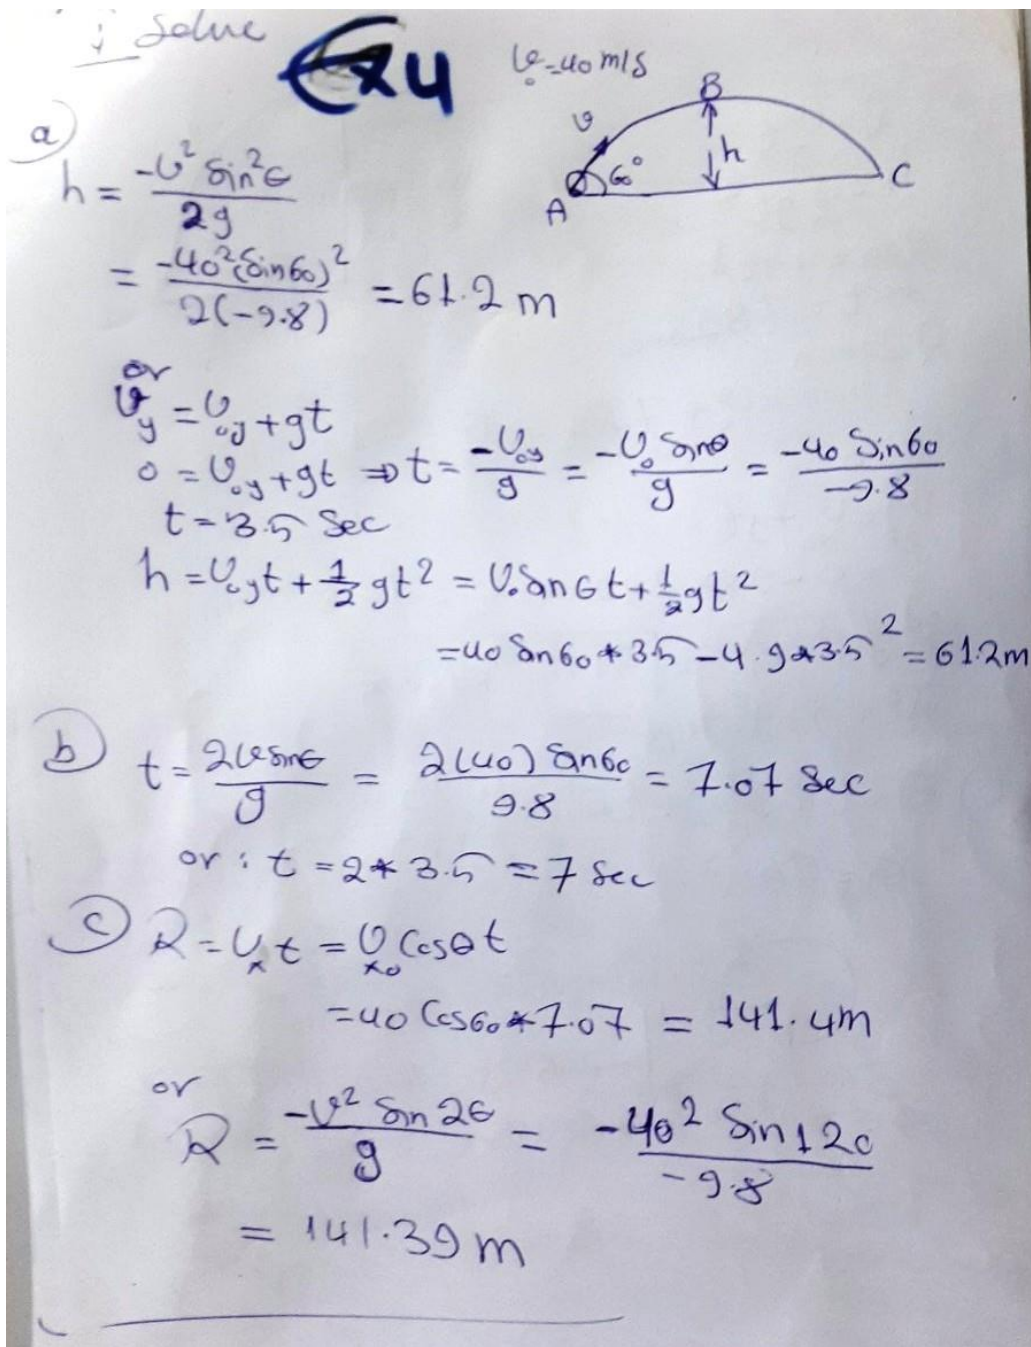 Solve
Ex 4
v₀=40 m/s
B
v
h
60°
A
C
a
h = -v² sin²θ / 2g
= -40²(sin60)² / 2(-9.8) = 61.2 m
or
v_y = v_oy + gt
0 = v_oy + gt ⇒ t = -v_oy / g = -v₀ sinθ / g = -40 Sin60 / -9.8
t = 3.5 Sec
h = v_oy t + 1/2 gt² = v₀ sinθ t + 1/2 gt²
= 40 sin60 * 3.5 - 4.9 * 3.5² = 61.2m
b t = 2v sinθ / g = 2(40) sin60 / 9.8 = 7.07 Sec
or : t = 2 * 3.5 = 7 Sec
c R = v_x t = v_x₀ Cosθ t
= 40 Cos60 * 7.07 = 141.4m
or
R = -v² Sin 2θ / g = -40² Sin 120 / -9.8
= 141.39 m